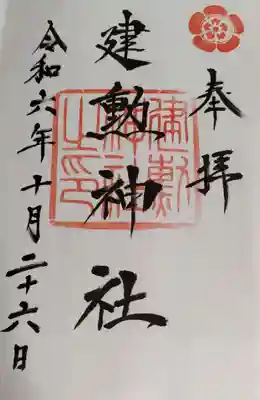 奉拝
建勲神社
令和六年十月二十六日